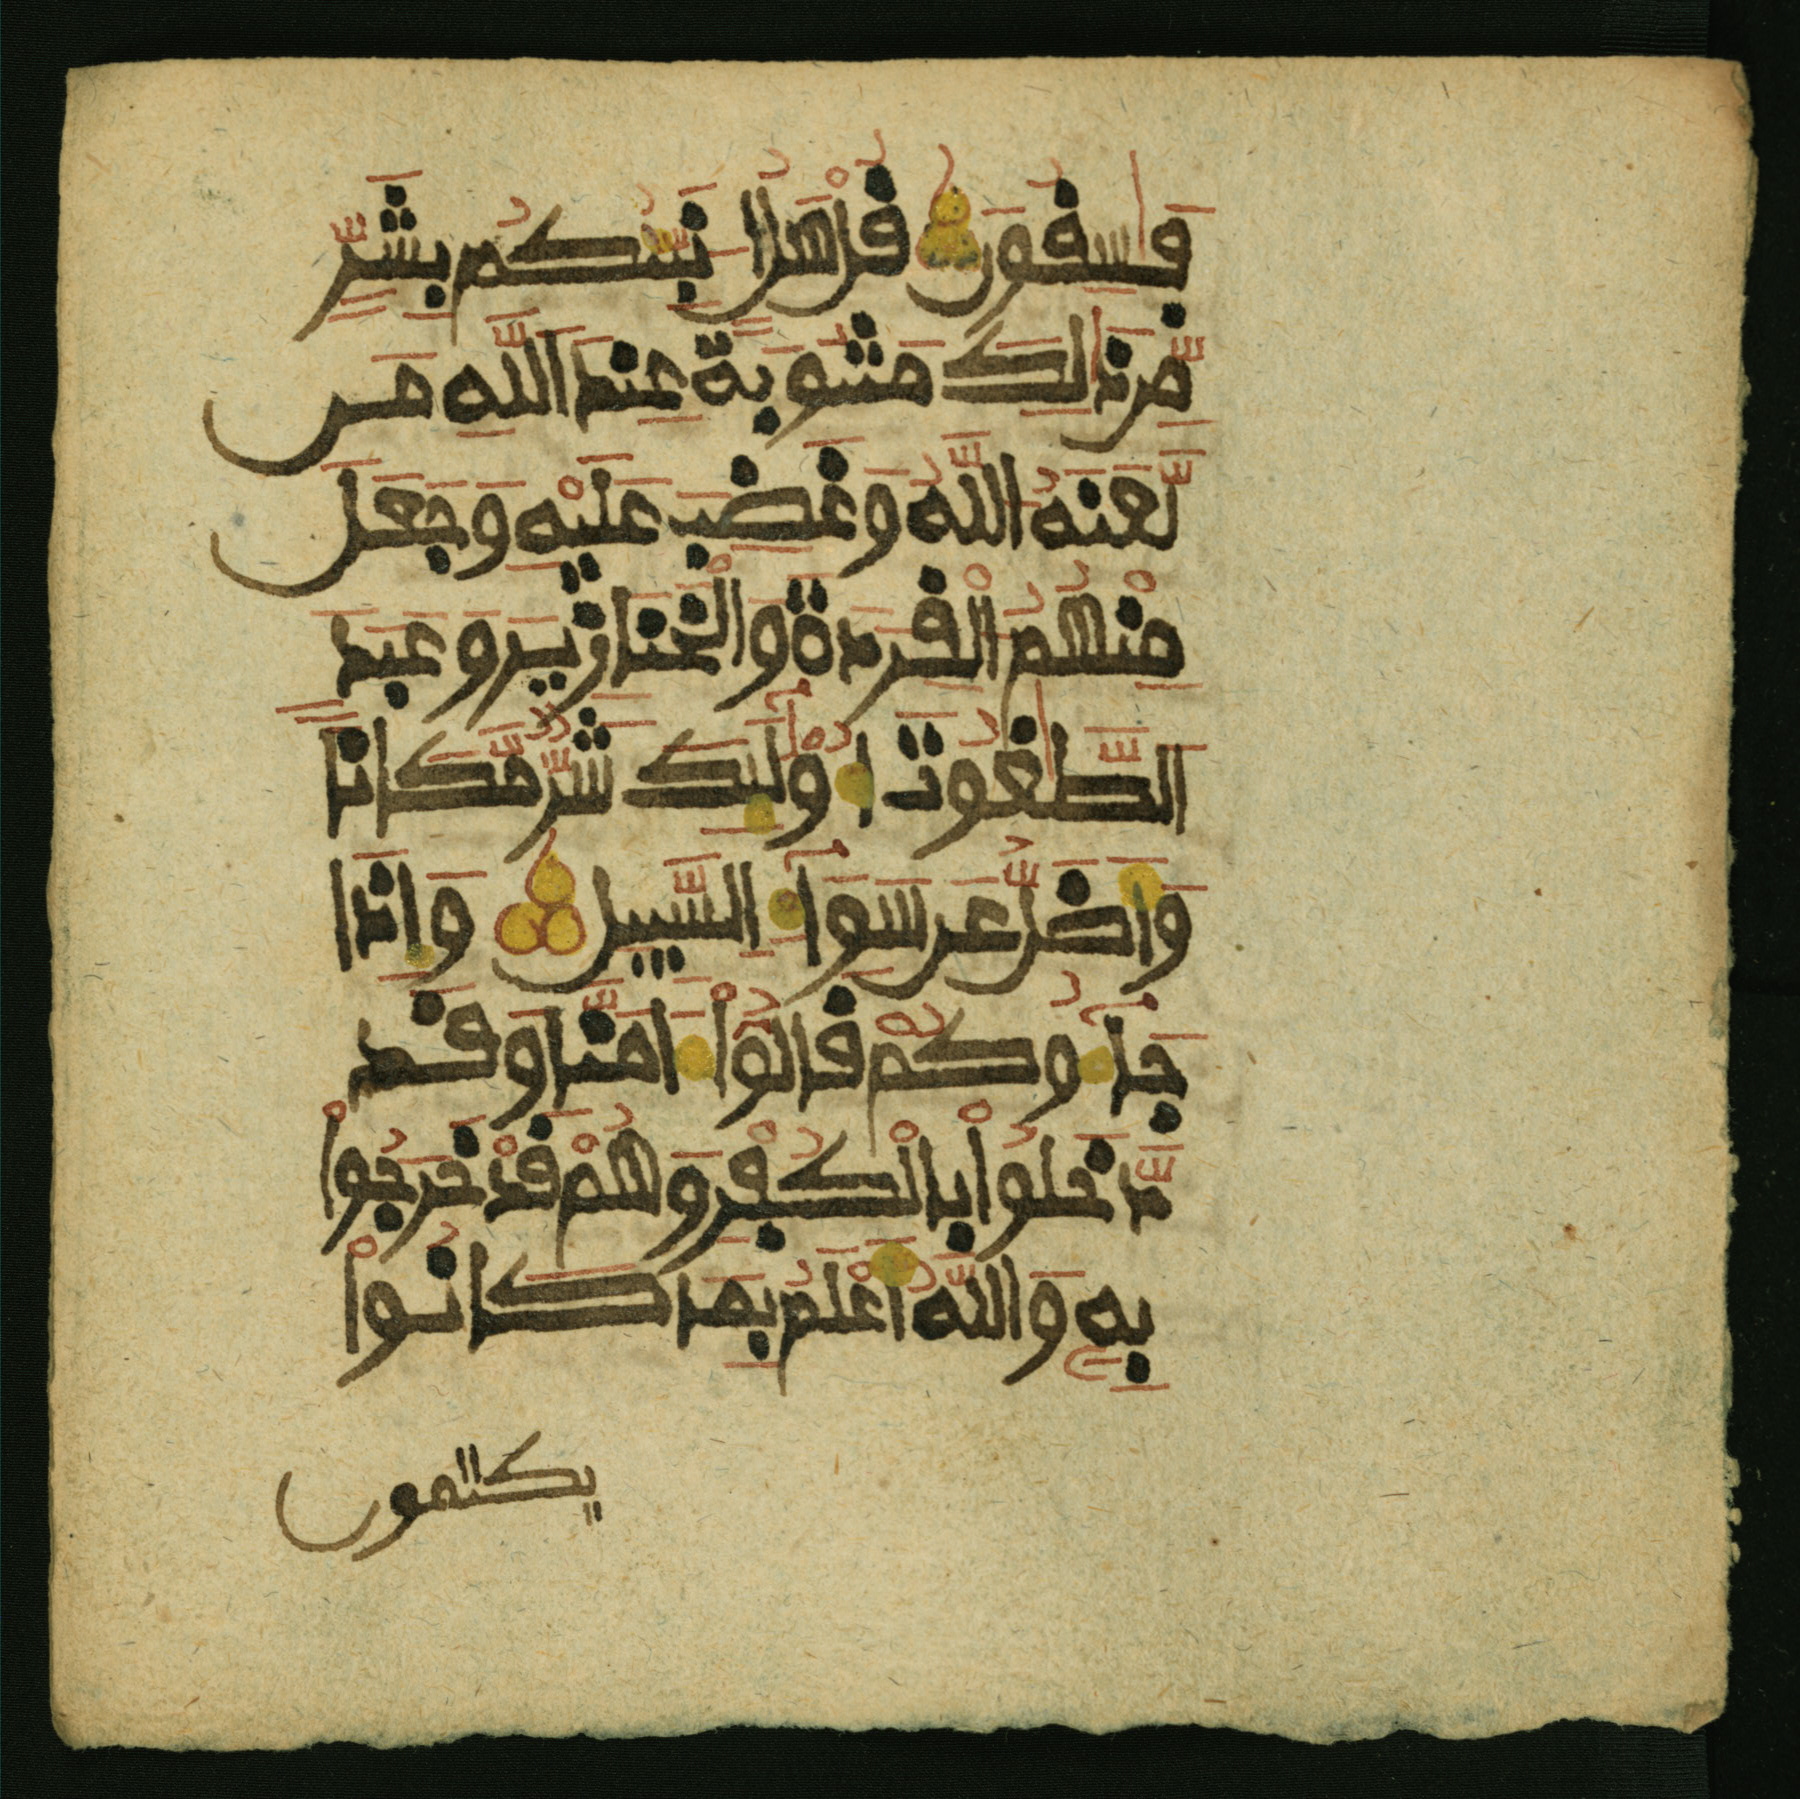 فَٰسِقُونَ قُلْ هَلُ ا۟نَبِّئُكُم بِشَرٍّ
مِّن ذَٰلِكَ مَثُوبَةً عِندَ اللَّهِ مَن
لَّعَنَهُ اللَّهُ وَغَضِبَ عَلَيْهِ وَجَعَلَ
مِنْهُمُ الْقِرَدَةَ وَالْخَنَازِيرَ وَعَبَدَ
الطَّٰغُوتَ أُوْلَٰٓئِكَ شَرٌّ مَّكَانًا
وَأَضَلُّ عَن سَوَآءِ السَّبِيلِ وَإِذَا
جَآءُوكُمْ قَالُوا ءَامَنَّا وَقَد
دَّخَلُوا بِالْكُفْرِ وَهُمْ قَدْ خَرَجُوا
بِهِ وَاللَّهُ أَعْلَمُ بِمَا كَانُوا
يكتمون